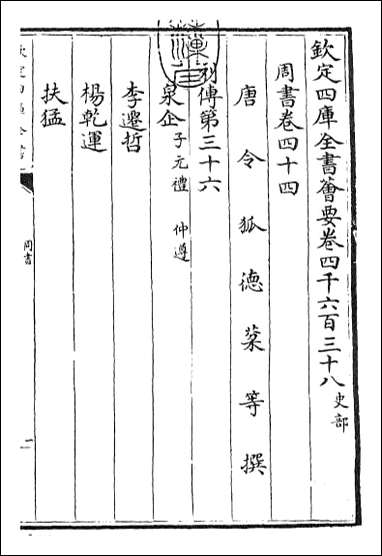 欽定四庫全書薈要卷四千六百三十八 史部
周書卷四十四
唐令狐德棻等撰
列傳第三十六
泉企 子元禮 仲遵
李遷哲
楊乾運
扶猛
周書